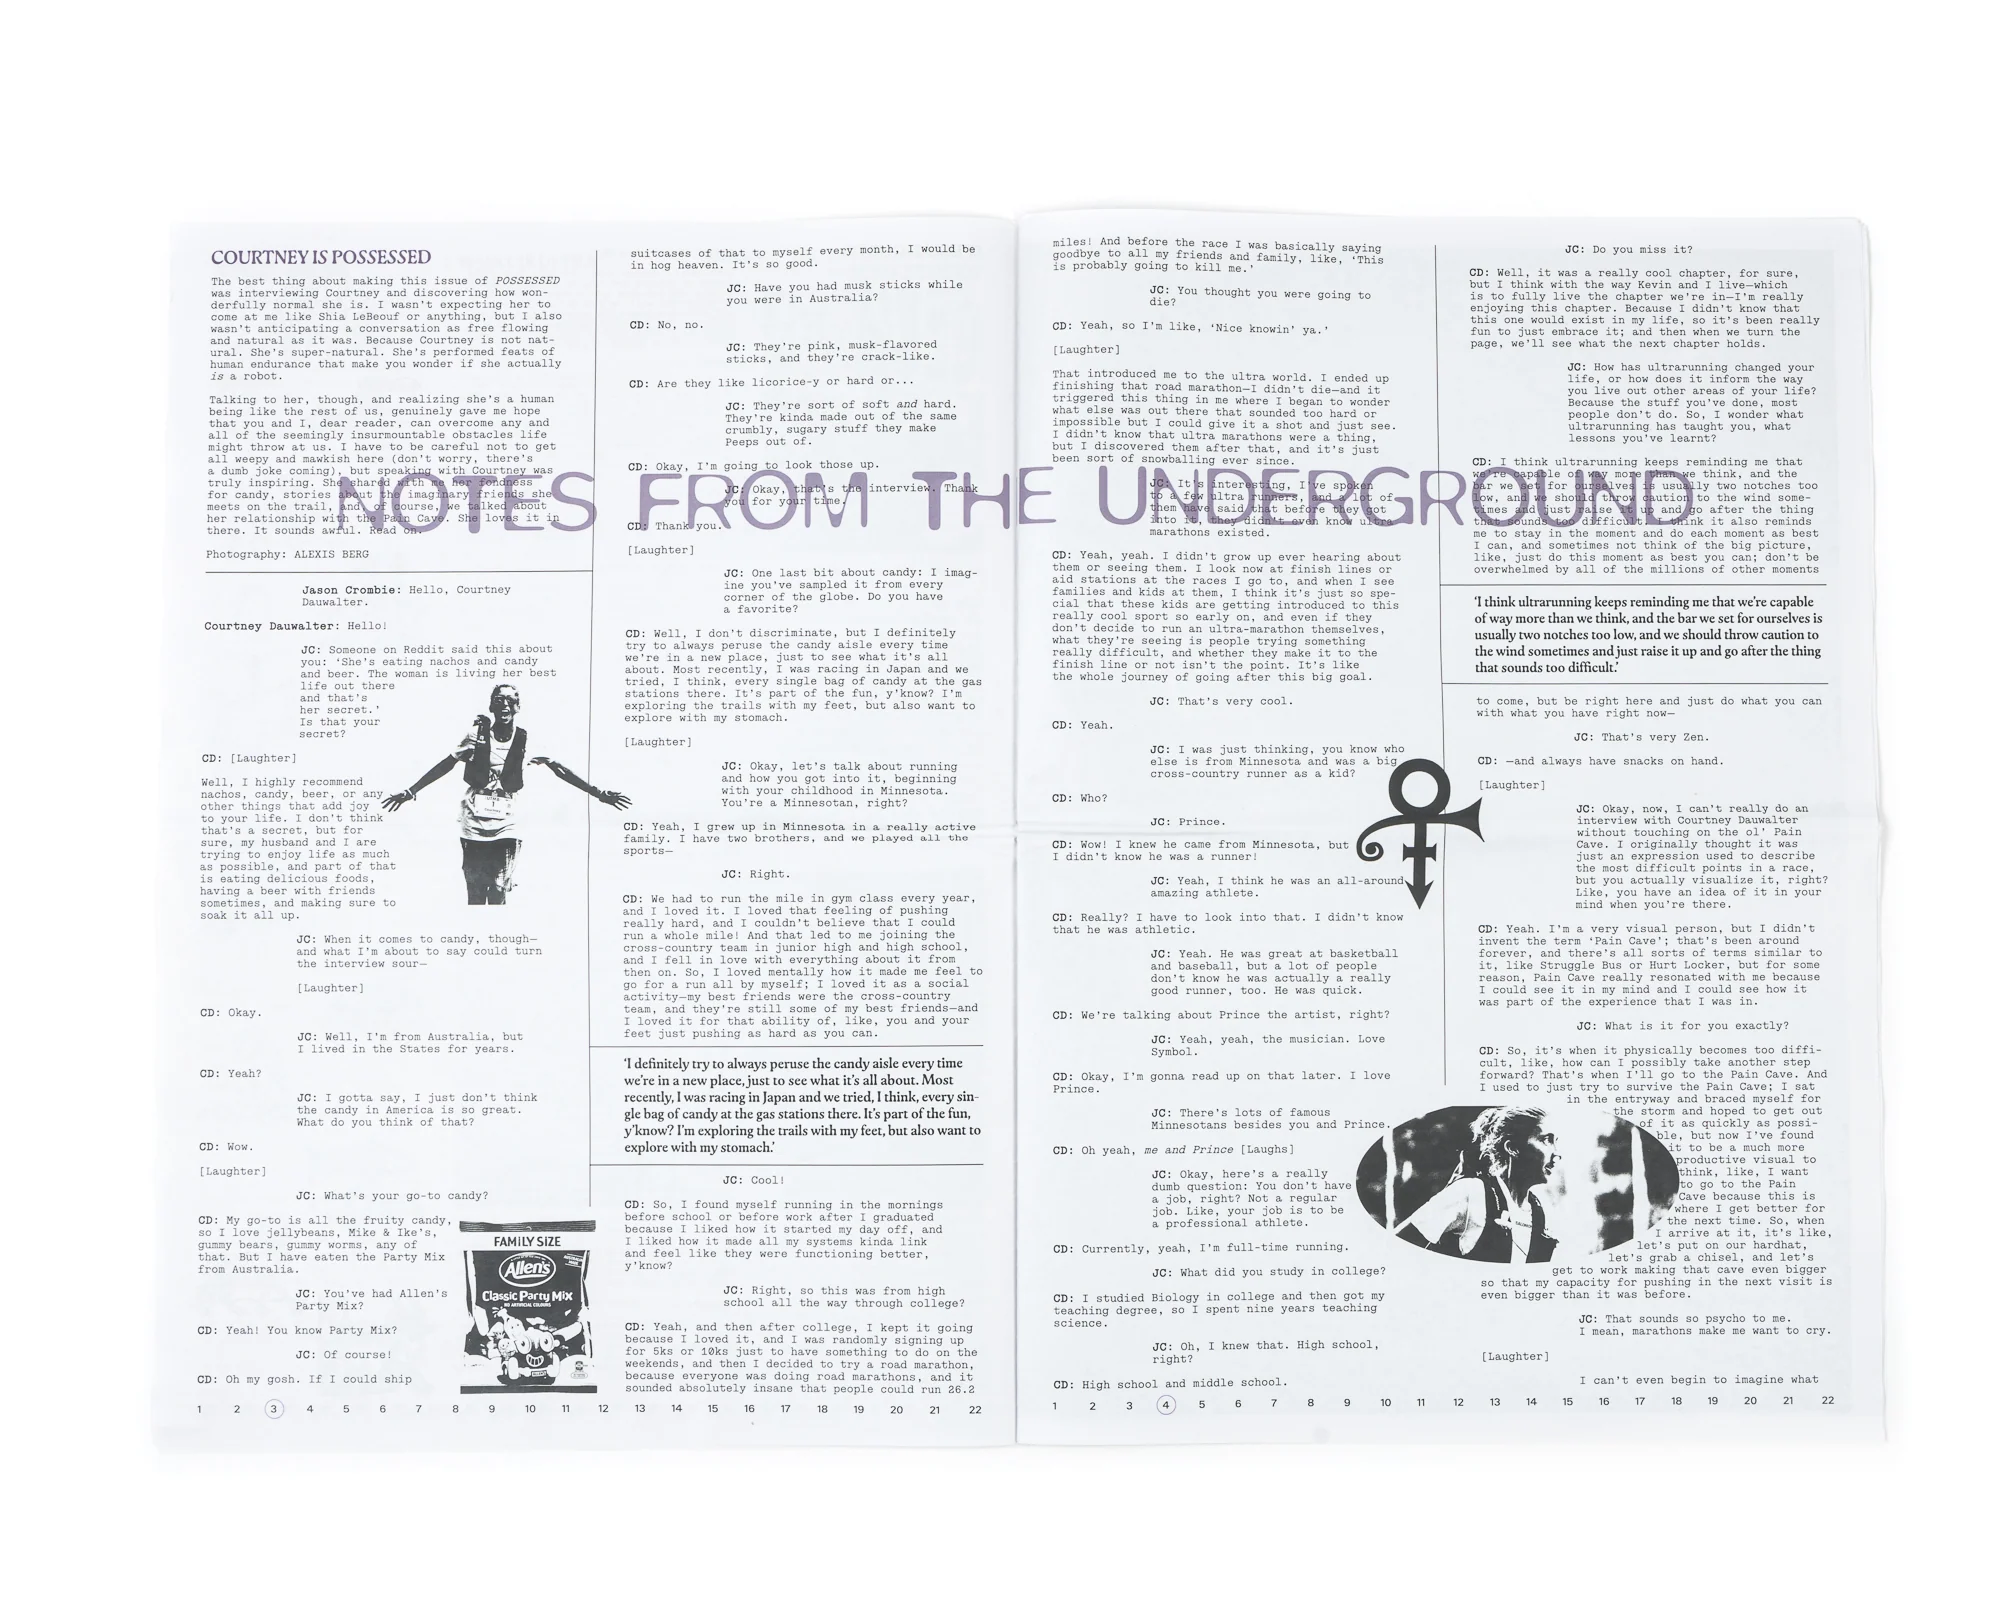 COURTNEY IS POSSESSED
The best thing about making this issue of POSSESSED
was interviewing Courtney and discovering how won-
derfully normal she is. I wasn't expecting her to
come at me like Shia LeBeouf or anything, but I also
wasn't anticipating a conversation as free flowing
and natural as it was. Because Courtney is not nat-
ural. She's super-natural. She's performed feats of
human endurance that make you wonder if she actually
is a robot.
Talking to her, though, and realizing she's a human
being like the rest of us, genuinely gave me hope
that you and I, dear reader, can overcome any and
all of the seemingly insurmountable obstacles life
might throw at us. I have to be careful not to get
all weepy and mawkish here (don't worry, there's
a dumb joke coming), but speaking with Courtney was
truly inspiring. She shared with me her fondness
for candy, stories about the imaginary friends she
meets on the trail, and of course, we talked about
her relationship with the Pain Cave. She loves it in
there. It sounds awful. Read on.
Photography: ALEXIS BERG
NOTES FROM THE UNDERGROUND
Jason Crombie: Hello, Courtney
Dauwalter.
Courtney Dauwalter: Hello!
JC: Someone on Reddit said this about
you: ‘She's eating nachos and candy
and beer. The woman is living her best
life out there
and that's
her secret.’
Is that your
secret?
CD: [Laughter]
Well, I highly recommend
nachos, candy, beer, or any
other things that add joy
to your life. I don't think
that's a secret, but for
sure, my husband and I are
trying to enjoy life as much
as possible, and part of that
is eating delicious foods,
having a beer with friends
sometimes, and making sure to
soak it all up.
JC: When it comes to candy, though—
and what I'm about to say could turn
the interview sour—
[Laughter]
CD: Okay.
JC: Well, I'm from Australia, but
I lived in the States for years.
CD: Yeah?
JC: I gotta say, I just don't think
the candy in America is so great.
What do you think of that?
CD: Wow.
[Laughter]
JC: What's your go-to candy?
CD: My go-to is all the fruity candy,
so I love jellybeans, Mike & Ike's,
gummy bears, gummy worms, any of
that. But I have eaten the Party Mix
from Australia.
JC: You've had Allen's
Party Mix?
CD: Yeah! You know Party Mix?
JC: Of course!
CD: Oh my gosh. If I could ship
FAMILY SIZE
Allen's
Classic Party Mix
NO ARTIFICIAL COLOURS
suitcases of that to myself every month, I would be
in hog heaven. It's so good.
JC: Have you had musk sticks while
you were in Australia?
CD: No, no.
JC: They're pink, musk-flavored
sticks, and they're crack-like.
CD: Are they like licorice-y or hard or...
JC: They're sort of soft and hard.
They're kinda made out of the same
crumbly, sugary stuff they make
Peeps out of.
CD: Okay, I'm going to look those up.
JC: Okay, that's the interview. Thank
you for your time.
CD: Thank you.
[Laughter]
JC: One last bit about candy: I imag-
ine you've sampled it from every
corner of the globe. Do you have
a favorite?
CD: Well, I don't discriminate, but I definitely
try to always peruse the candy aisle every time
we're in a new place, just to see what it's all
about. Most recently, I was racing in Japan and we
tried, I think, every single bag of candy at the gas
stations there. It's part of the fun, y'know? I'm
exploring the trails with my feet, but also want to
explore with my stomach.
[Laughter]
JC: Okay, let's talk about running
and how you got into it, beginning
with your childhood in Minnesota.
You're a Minnesotan, right?
CD: Yeah, I grew up in Minnesota in a really active
family. I have two brothers, and we played all the
sports—
JC: Right.
CD: We had to run the mile in gym class every year,
and I loved it. I loved that feeling of pushing
really hard, and I couldn't believe that I could
run a whole mile! And that led to me joining the
cross-country team in junior high and high school,
and I fell in love with everything about it from
then on. So, I loved mentally how it made me feel to
go for a run all by myself; I loved it as a social
activity—my best friends were the cross-country
team, and they're still some of my best friends—and
I loved it for that ability of, like, you and your
feet just pushing as hard as you can.
‘I definitely try to always peruse the candy aisle every time
we're in a new place, just to see what it's all about. Most
recently, I was racing in Japan and we tried, I think, every sin-
gle bag of candy at the gas stations there. It's part of the fun,
y'know? I'm exploring the trails with my feet, but also want to
explore with my stomach.’
JC: Cool!
CD: So, I found myself running in the mornings
before school or before work after I graduated
because I liked how it started my day off, and
I liked how it made all my systems kinda link
and feel like they were functioning better,
y'know?
JC: Right, so this was from high
school all the way through college?
CD: Yeah, and then after college, I kept it going
because I loved it, and I was randomly signing up
for 5ks or 10ks just to have something to do on the
weekends, and then I decided to try a road marathon,
because everyone was doing road marathons, and it
sounded absolutely insane that people could run 26.2
1 2 3 4 5 6 7 8 9 10 11 12 13 14 15 16 17 18 19 20 21 22
miles! And before the race I was basically saying
goodbye to all my friends and family, like, ‘This
is probably going to kill me.’
JC: You thought you were going to
die?
CD: Yeah, so I'm like, ‘Nice knowin' ya.’
[Laughter]
That introduced me to the ultra world. I ended up
finishing that road marathon—I didn't die—and it
triggered this thing in me where I began to wonder
what else was out there that sounded too hard or
impossible but I could give it a shot and just see.
I didn't know that ultra marathons were a thing,
but I discovered them after that, and it's just
been sort of snowballing ever since.
JC: It's interesting, I've spoken
to a few ultra runners, and a lot of
them have said that before they got
into it, they didn't even know ultra
marathons existed.
CD: Yeah, yeah. I didn't grow up ever hearing about
them or seeing them. I look now at finish lines or
aid stations at the races I go to, and when I see
families and kids at them, I think it's just so spe-
cial that these kids are getting introduced to this
really cool sport so early on, and even if they
don't decide to run an ultra-marathon themselves,
what they're seeing is people trying something
really difficult, and whether they make it to the
finish line or not isn't the point. It's like
the whole journey of going after this big goal.
JC: That's very cool.
CD: Yeah.
JC: I was just thinking, you know who
else is from Minnesota and was a big
cross-country runner as a kid?
CD: Who?
JC: Prince.
CD: Wow! I knew he came from Minnesota, but
I didn't know he was a runner!
JC: Yeah, I think he was an all-around
amazing athlete.
CD: Really? I have to look into that. I didn't know
that he was athletic.
JC: Yeah. He was great at basketball
and baseball, but a lot of people
don't know he was actually a really
good runner, too. He was quick.
CD: We're talking about Prince the artist, right?
JC: Yeah, yeah, the musician. Love
Symbol.
CD: Okay, I'm gonna read up on that later. I love
Prince.
JC: There's lots of famous
Minnesotans besides you and Prince.
CD: Oh yeah, me and Prince [Laughs]
JC: Okay, here's a really
dumb question: You don't have
a job, right? Not a regular
job. Like, your job is to be
a professional athlete.
CD: Currently, yeah, I'm full-time running.
JC: What did you study in college?
CD: I studied Biology in college and then got my
teaching degree, so I spent nine years teaching
science.
JC: Oh, I knew that. High school,
right?
CD: High school and middle school.
JC: Do you miss it?
CD: Well, it was a really cool chapter, for sure,
but I think with the way Kevin and I live—which
is to fully live the chapter we're in—I'm really
enjoying this chapter. Because I didn't know that
this one would exist in my life, so it's been really
fun to just embrace it; and then when we turn the
page, we'll see what the next chapter holds.
JC: How has ultrarunning changed your
life, or how does it inform the way
you live out other areas of your life?
Because the stuff you've done, most
people don't do. So, I wonder what
ultrarunning has taught you, what
lessons you've learnt?
CD: I think ultrarunning keeps reminding me that
we're capable of way more than we think, and the
bar we set for ourselves is usually two notches too
low, and we should throw caution to the wind some-
times and just raise it up and go after the thing
that sounds too difficult. I think it also reminds
me to stay in the moment and do each moment as best
I can, and sometimes not think of the big picture,
like, just do this moment as best you can; don't be
overwhelmed by all of the millions of other moments
‘I think ultrarunning keeps reminding me that we're capable
of way more than we think, and the bar we set for ourselves is
usually two notches too low, and we should throw caution to
the wind sometimes and just raise it up and go after the thing
that sounds too difficult.’
to come, but be right here and just do what you can
with what you have right now—
JC: That's very Zen.
CD: —and always have snacks on hand.
[Laughter]
JC: Okay, now, I can't really do an
interview with Courtney Dauwalter
without touching on the ol' Pain
Cave. I originally thought it was
just an expression used to describe
the most difficult points in a race,
but you actually visualize it, right?
Like, you have an idea of it in your
mind when you're there.
CD: Yeah. I'm a very visual person, but I didn't
invent the term ‘Pain Cave’; that's been around
forever, and there's all sorts of terms similar to
it, like Struggle Bus or Hurt Locker, but for some
reason, Pain Cave really resonated with me because
I could see it in my mind and I could see how it
was part of the experience that I was in.
JC: What is it for you exactly?
CD: So, it's when it physically becomes too diffi-
cult, like, how can I possibly take another step
forward? That's when I'll go to the Pain Cave. And
I used to just try to survive the Pain Cave; I sat
in the entryway and braced myself for
the storm and hoped to get out
of it as quickly as possi-
ble, but now I've found
it to be a much more
productive visual to
think, like, I want
to go to the Pain
Cave because this is
where I get better for
the next time. So, when
I arrive at it, it's like,
let's put on our hardhat,
let's grab a chisel, and let's
get to work making that cave even bigger
so that my capacity for pushing in the next visit is
even bigger than it was before.
JC: That sounds so psycho to me.
I mean, marathons make me want to cry.
[Laughter]
I can't even begin to imagine what
1 2 3 4 5 6 7 8 9 10 11 12 13 14 15 16 17 18 19 20 21 22